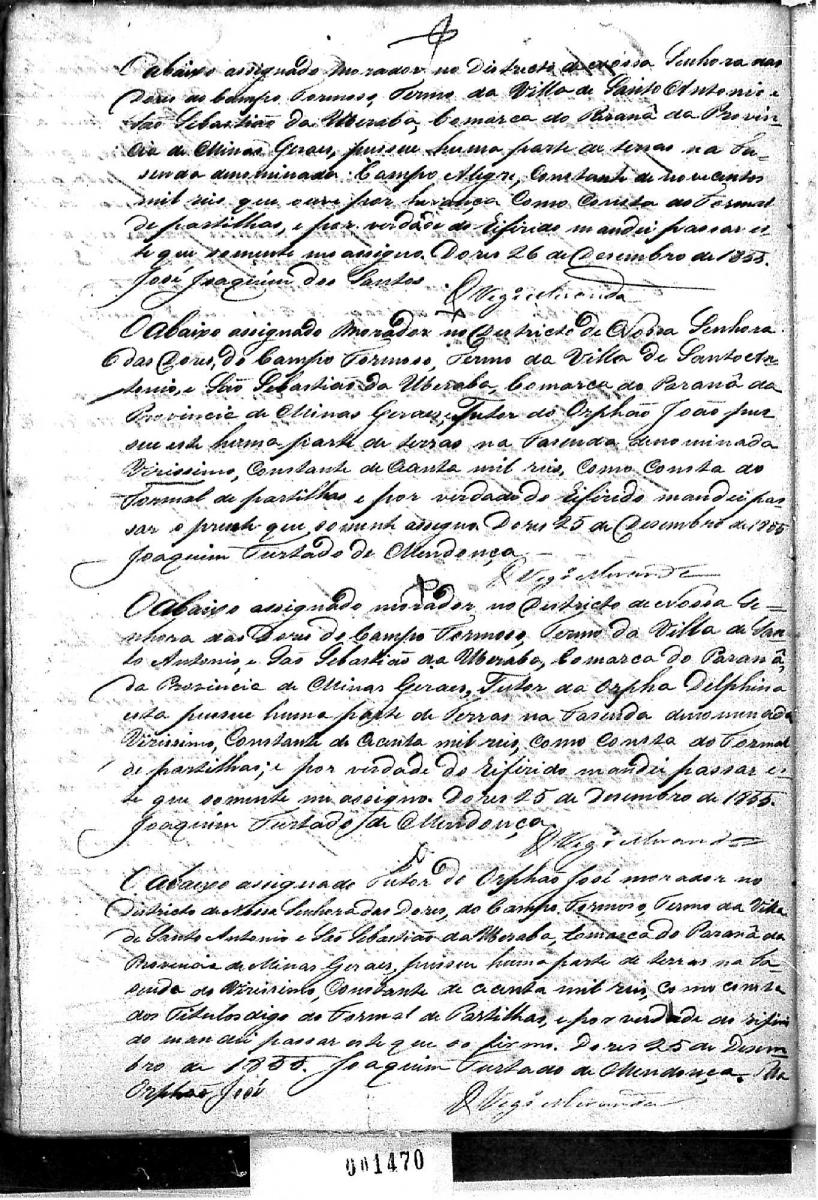 O abaixo assignado morador no Districto de Nossa Senhora das
Dores do Campo Formoso, Termo da Villa de Santo Antonio e
São Sebastião da Uberaba, Comarca do Paranâ da Provin
cia de Minas Geraes, pussue huma parte de terras na Fa-
senda denominada Campo Alegre, Constante de novecentos
mil reis que ouve por herança como consta do Formal
de partilhas, e por verdade do Rifirido mandei passar es
te que somente me assigno. Dores 26 de Desembro de 1855.
José Joaquim dos Santos
O Vegº Miranda
O Abaixo assignado morador no Districto de Nossa Senhora
das Dores, do Campo Formoso, Termo da Villa de Santo An-
tonio, e São Sebastião da Uberaba, Comarca do Paranâ da
Provincia de Minas Geraes, Tutor do Orphão João pus
sue este huma parte de terras na Fasenda denominada
Virissimo, Constante de oitenta mil reis, como Consta do
Formal de partilhas e por verdade do Rifirido mandei pas-
sar o prente que somente assigno Dores 25 de Desembro de 1855
Joaquim Furtado de Mendonça
O Vegº Miranda
O Abaixo assignado morador no Districto de Nossa Se-
nhora das Dores do Campo Formoso, Termo da Villa de San
to Antonio, e São Sebastião da Uberaba, Comarca do Paranâ,
da Provincia de Minas Geraes, Tutor da Orpha Delphina
esta pussue huma parte de Terras na Fasenda denominada
Virissimo, Constante de oitenta mil reis, como Consta do Formal
de partilhas; e por verdade do Rifirido mandei passar es-
te que somente me assigno. Dores 25 de Desembro de 1855.
Joaquim Furtado de Mendonça
O Vegº Miranda
O Abaixo assignado Tutor do Orphão José morador no
Districto de Nossa Senhora das Dores, do Campo Formoso, Termo da Villa
de Santo Antonio e São Sebastião da Uberaba, Comarca do Paranâ da
Provincia de Minas Geraes, pussue huma parte de terras na Fa-
senda do Virissimo, Constante de oitenta mil reis, como consta
dos Titulos digo do Formal de Partilhas, e por verdade do rifiri
do mandei passar este que so firmo. Dores 25 de Desem
bro de 1855. Joaquim Furtado de Mendonça.
Orphão José
O Vegº Miranda
001470